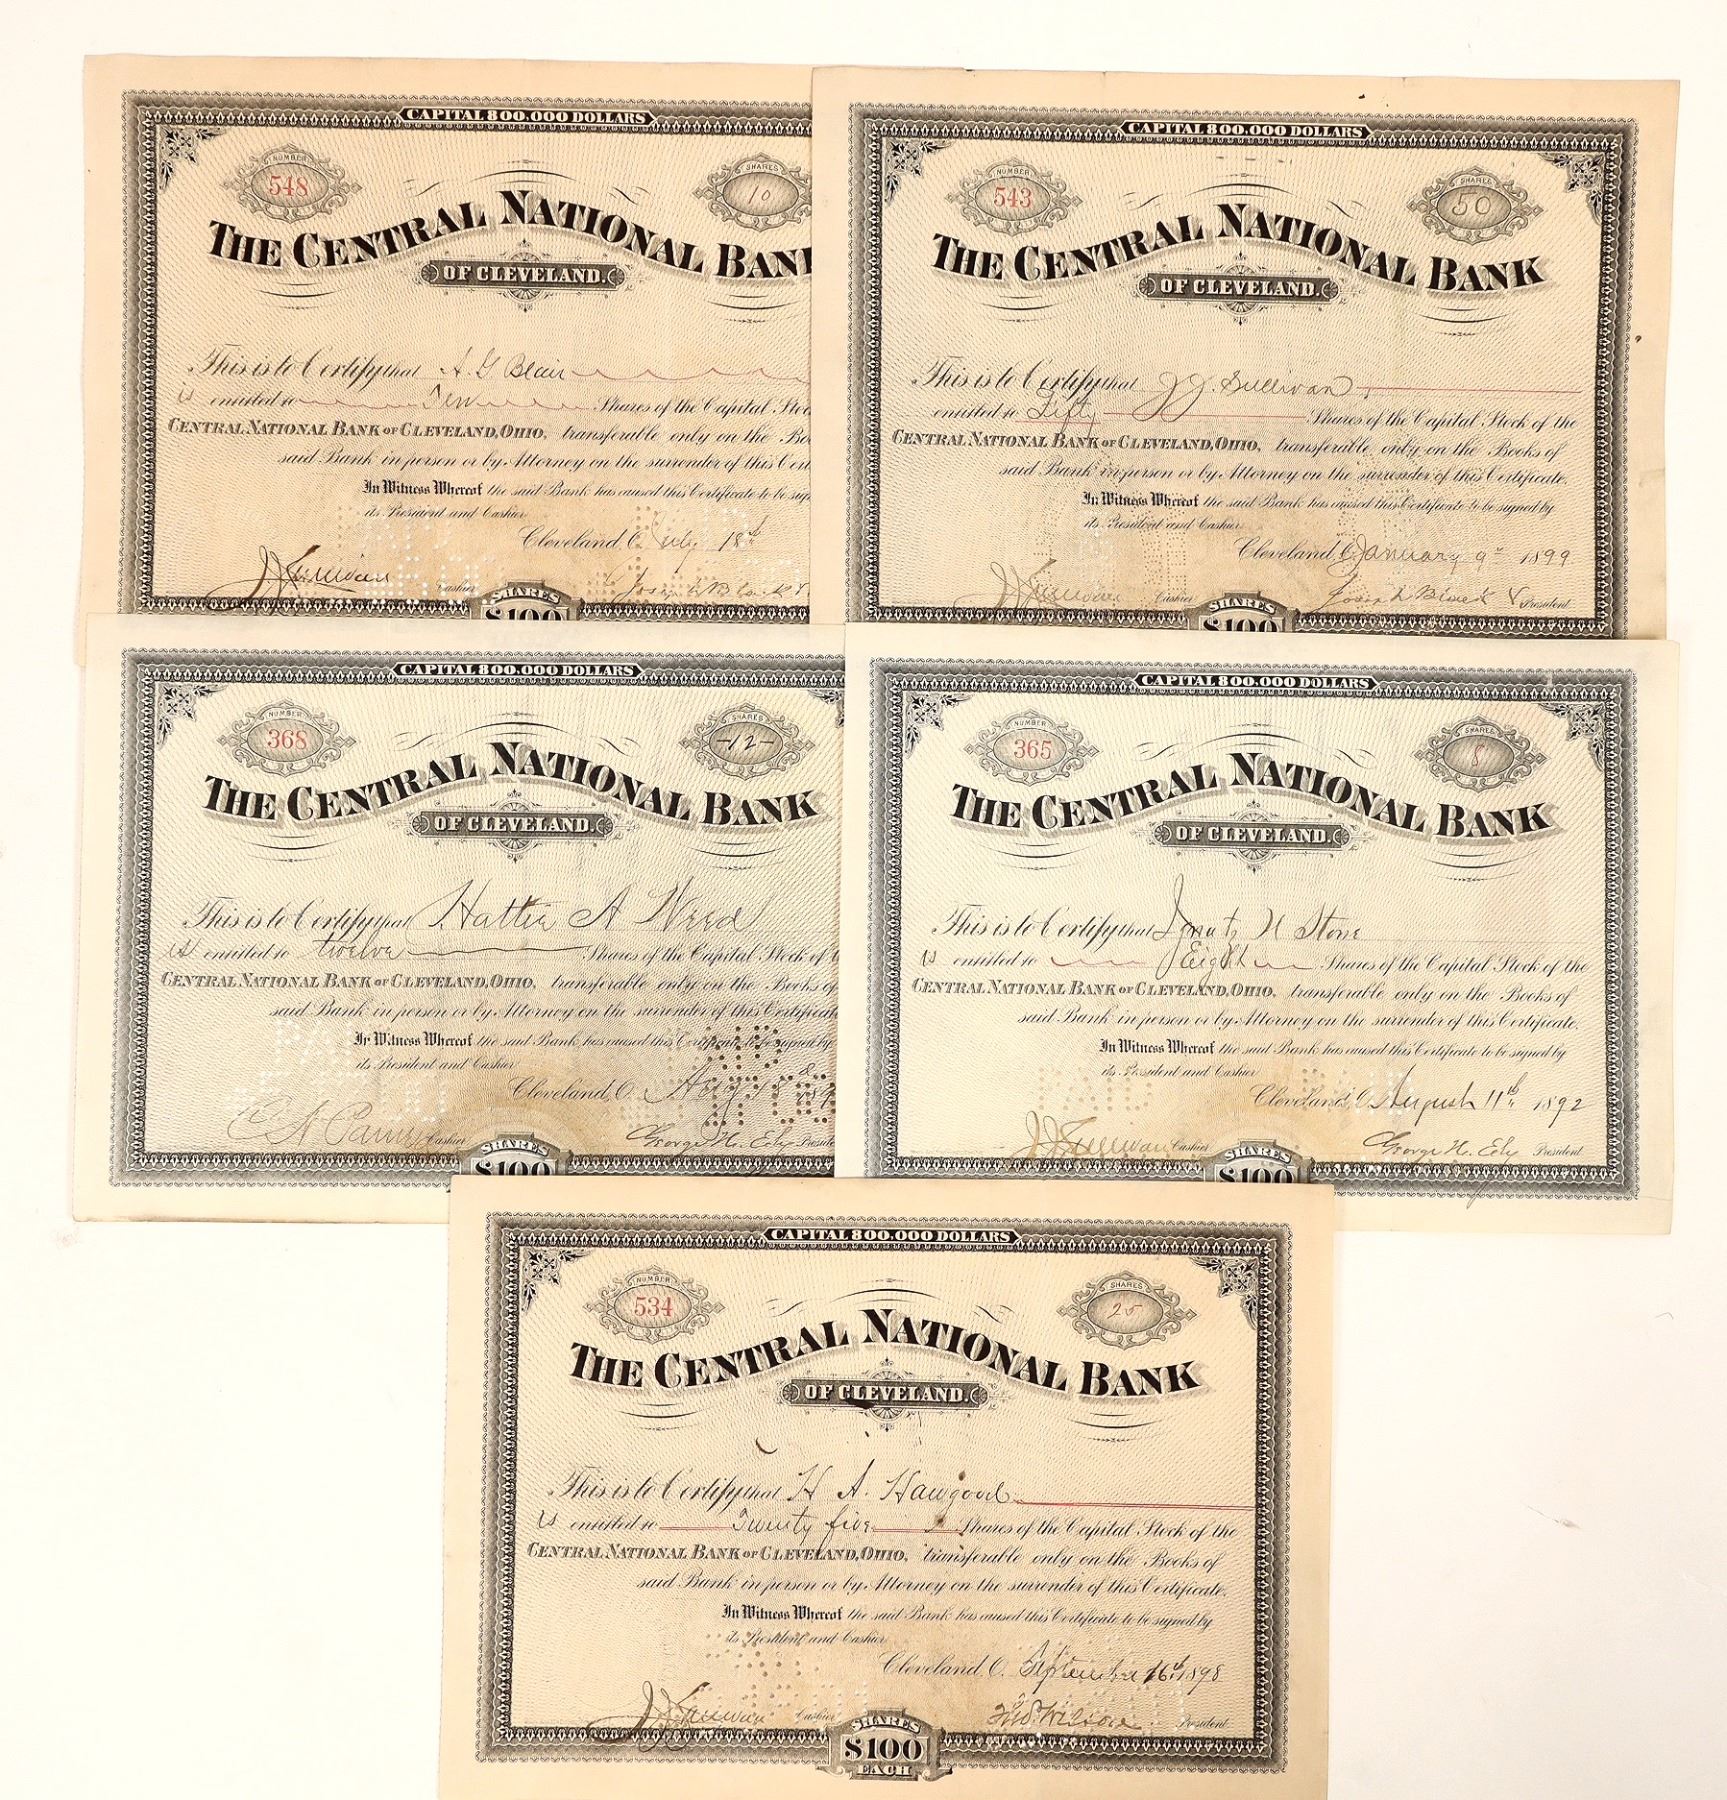 CAPITAL 800.000 DOLLARS
NUMBER
548
SHARES
10
THE CENTRAL NATIONAL BAN
OF CLEVELAND.
This is to Certify that A G Blair
is entitled to Ten Shares of the Capital Stoc
CENTRAL NATIONAL BANK OF CLEVELAND, OHIO, transferable only on the Bo
said Bank in person or by Attorney on the surrender of this Cert
In Witness Whereof the said Bank has caused this Certificate to be sig
its President and Cashier
Cleveland, O. July 18th
J J Sullivan Cashier
SHARES
$100
CAPITAL 800.000 DOLLARS
NUMBER
543
SHARES
50
THE CENTRAL NATIONAL BANK
OF CLEVELAND.
This is to Certify that J J. Sullivan
entitled to Fifty Shares of the Capital Stock of the
CENTRAL NATIONAL BANK OF CLEVELAND, OHIO, transferable only on the Books of
said Bank in person or by Attorney on the surrender of this Certificate.
In Witness Whereof the said Bank has caused this Certificate to be signed by
its President and Cashier
Cleveland, O. January 9th 1899
J J Sullivan Cashier President
SHARES
$100
CAPITAL 800.000 DOLLARS
NUMBER
368
SHARES
-12-
THE CENTRAL NATIONAL BANK
OF CLEVELAND.
This is to Certify that Hattie A Weed
is entitled to twelve Shares of the Capital Stock of
CENTRAL NATIONAL BANK OF CLEVELAND, OHIO, transferable only on the Books of
said Bank in person or by Attorney on the surrender of this Certificate
In Witness Whereof the said Bank has caused this Certificate to be signed by
its President and Cashier
Cleveland, O.
Cashier George H. Ely Preside
SHARES
$100
CAPITAL 800.000 DOLLARS
NUMBER
365
SHARES
8
THE CENTRAL NATIONAL BANK
OF CLEVELAND.
This is to Certify that N Stone
is entitled to Eight Shares of the Capital Stock of the
CENTRAL NATIONAL BANK OF CLEVELAND, OHIO, transferable only on the Books of
said Bank in person or by Attorney on the surrender of this Certificate.
In Witness Whereof the said Bank has caused this Certificate to be signed by
its President and Cashier
PAID
Cleveland, O. August 11th 1892
J J Sullivan Cashier George H. Ely President
SHARES
$100
CAPITAL 800.000 DOLLARS
NUMBER
534
SHARES
25
THE CENTRAL NATIONAL BANK
OF CLEVELAND.
This is to Certify that H A. Hawgood
is entitled to Twenty five Shares of the Capital Stock of the
CENTRAL NATIONAL BANK OF CLEVELAND, OHIO, transferable only on the Books of
said Bank in person or by Attorney on the surrender of this Certificate.
In Witness Whereof the said Bank has caused this Certificate to be signed by
its President and Cashier
Cleveland, O. September 16th 1898
J J Sullivan Cashier Wilson President
SHARES
$100
EACH